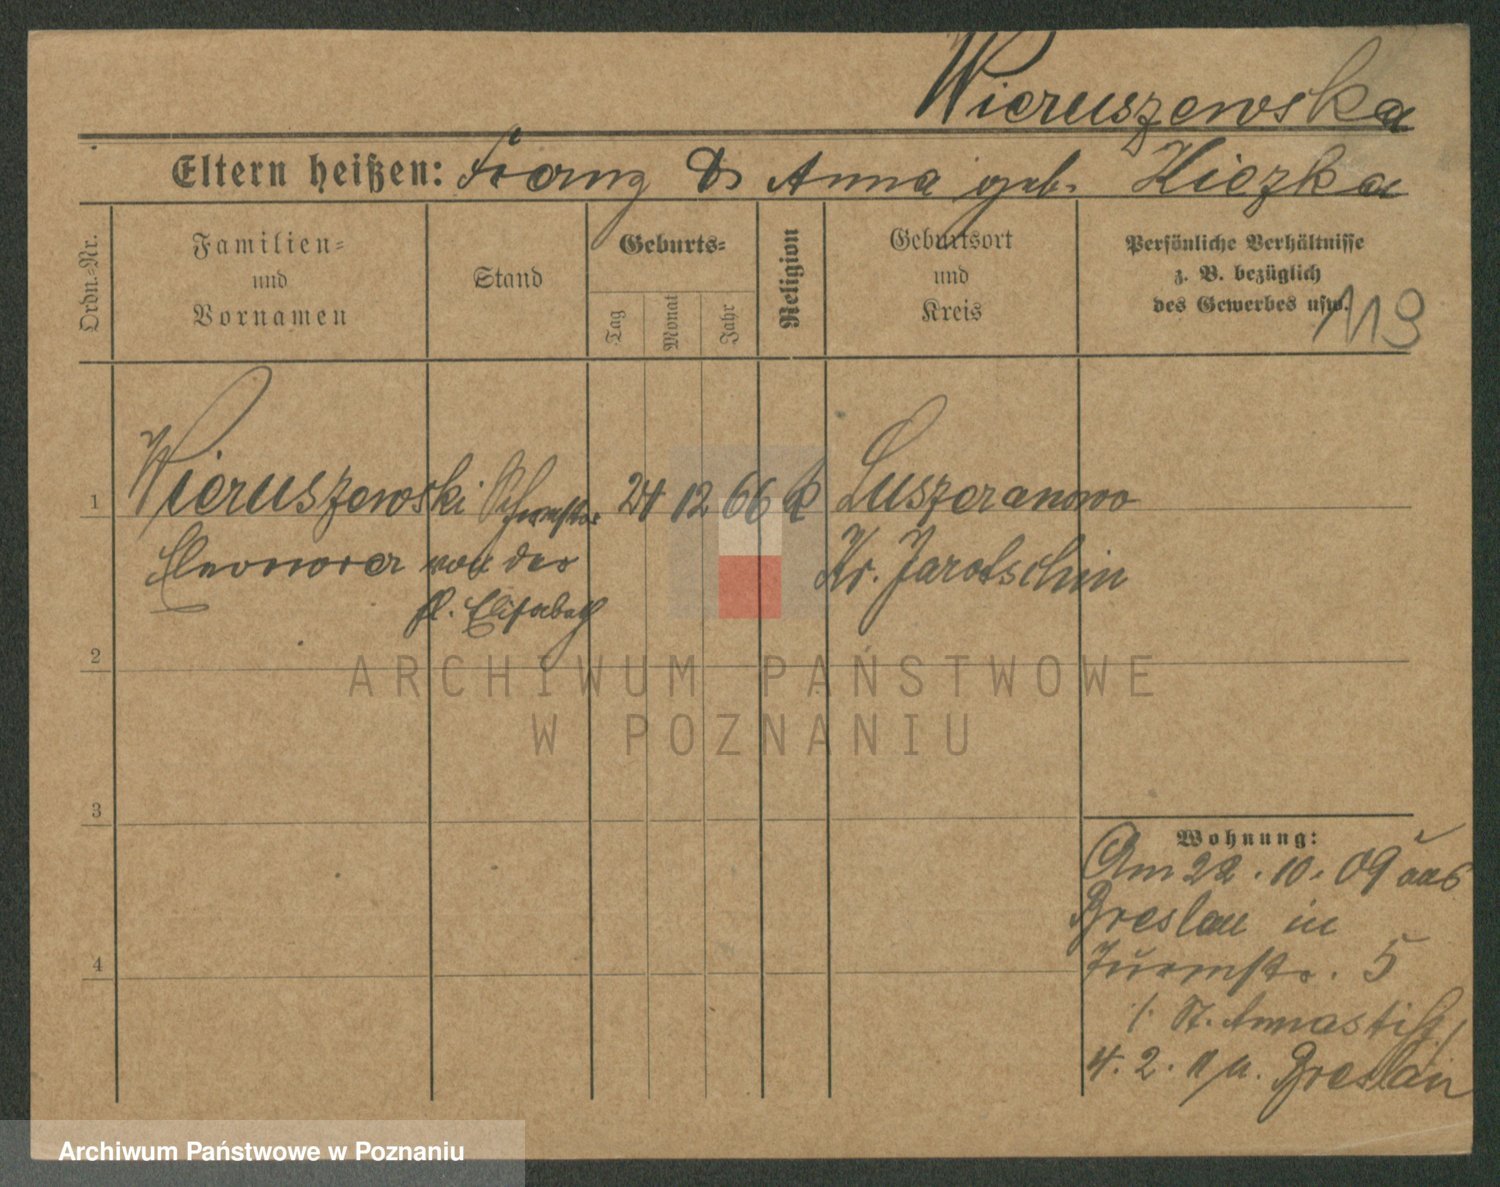 Wieruszewska
Eltern heißen: Franz & Anna geb. Kiezka
Ordn.-Nr.
Familien-
und
Vornamen
Stand
Geburts-
Tag
Monat
Jahr
Religion
Geburtsort
und
Kreis
Persönliche Verhältnisse
z. B. bezüglich
des Gewerbes usw.
119
1
Wieruszewski Schwester 24 12 66 k Luszczanowo
Eleonora von der Kr. Jarotschin
hl. Elisabeth
2
ARCHIWUM PAŃSTWOWE
W POZNANIU
3
Wohnung:
Am 22.10.09 aus
Breslau in
Turmstr. 5
/: St. Annastift /
4
4.2.11 n. Breslau
Archiwum Państwowe w Poznaniu